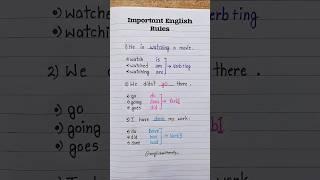 Important English
Rules
1) He is watching a movie.
•) watch is
•) watched am → verb+ing
•) watching are
2) We didn't go there.
•) go do
•) going does → Verb1
•) goes did
3) I have done my work.
•) do have
•) did has → Verb3
•) done had